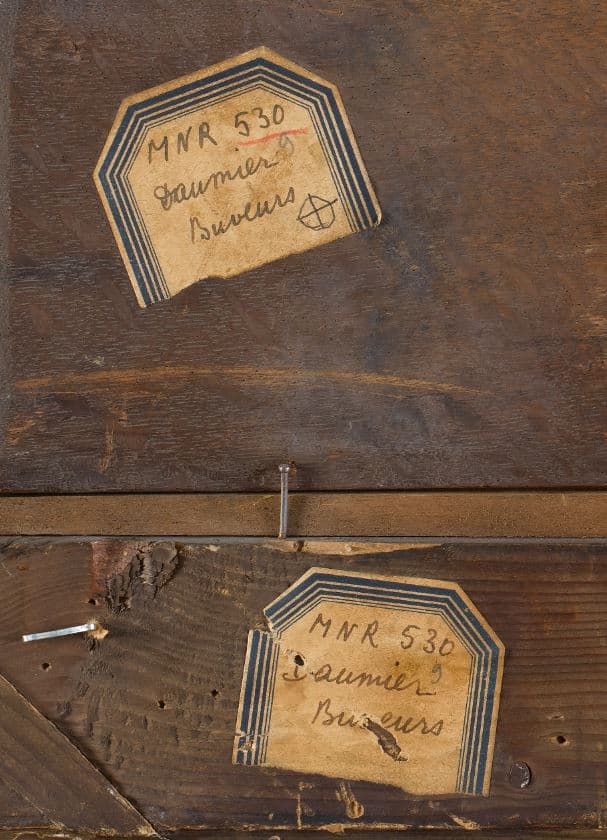 MNR 530
Daumier
Buveurs
MNR 530
Daumier
Buveurs